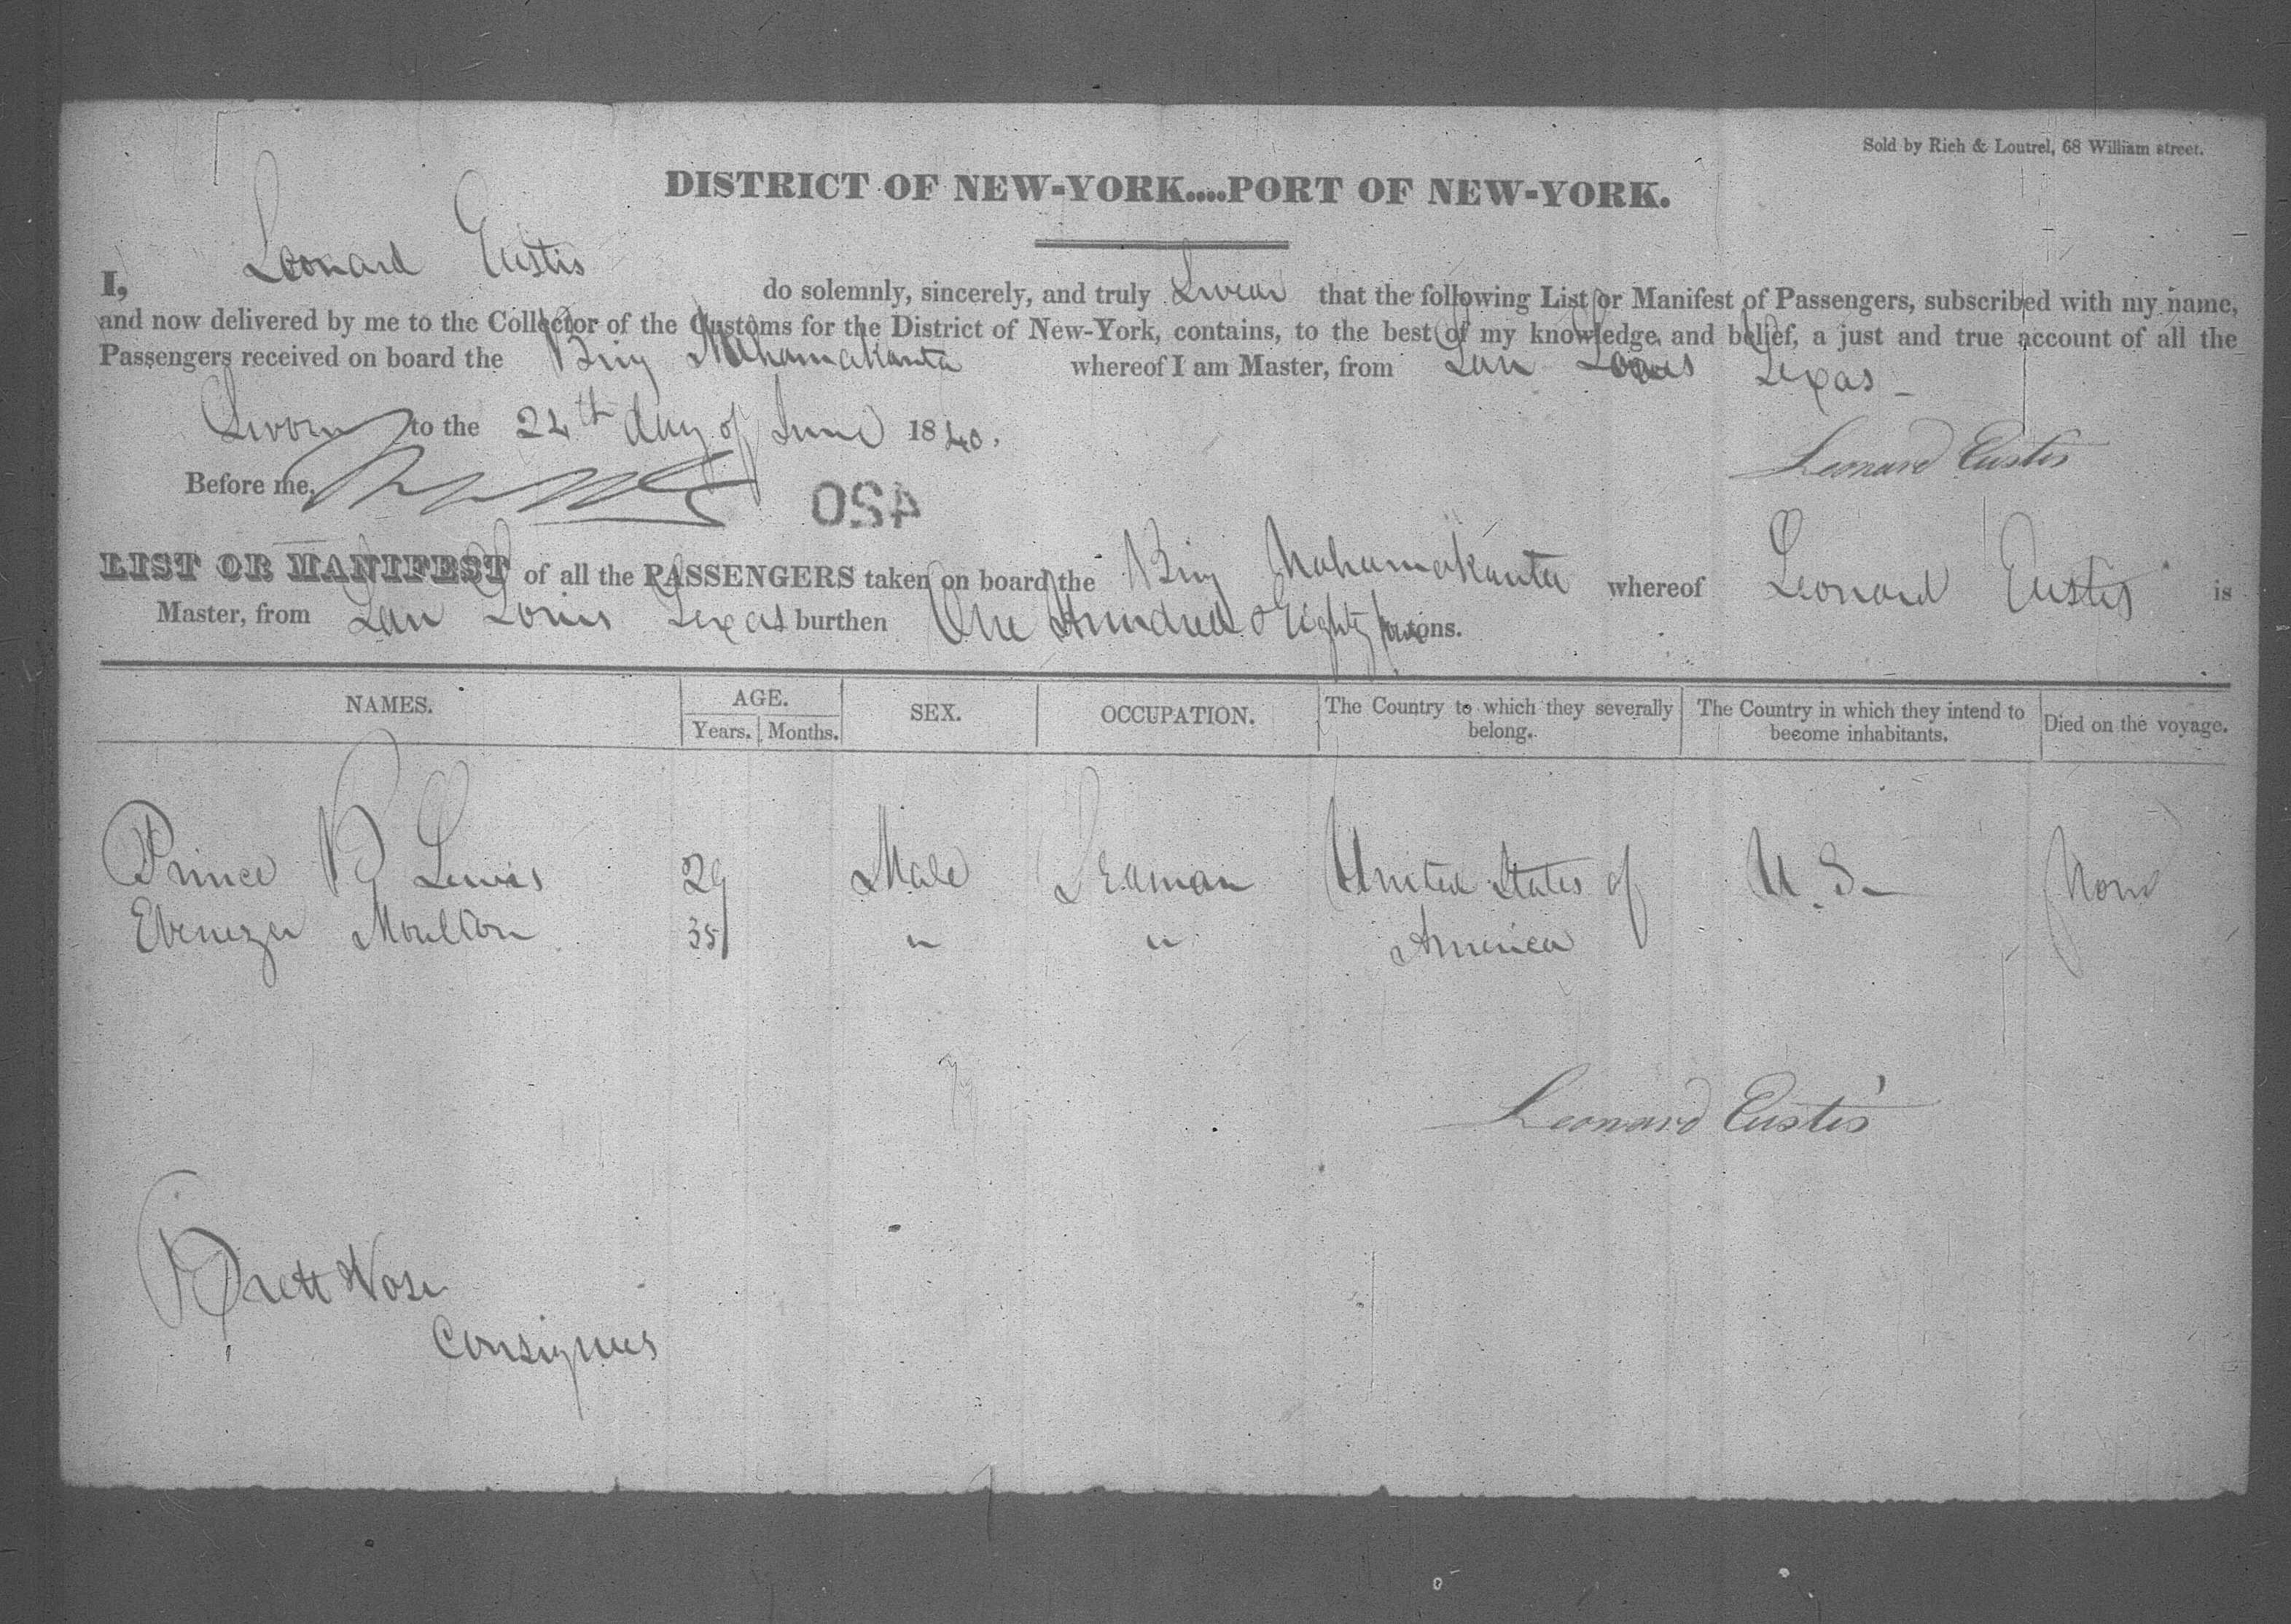 Sold by Rich & Loutrel, 68 William street.
DISTRICT OF NEW-YORK....PORT OF NEW-YORK.
I, Leonard Eustis do solemnly, sincerely, and truly Swear that the following List or Manifest of Passengers, subscribed with my name,
and now delivered by me to the Collector of the Customs for the District of New-York, contains, to the best of my knowledge and belief, a just and true account of all the
Passengers received on board the Brig Nahamakanta whereof I am Master, from San Louis Texas
Sworn to the 24th day of June 1840.
Leonard Eustis
Before me,
420
LIST OR MANIFEST of all the PASSENGERS taken on board the Brig Nahamakanta whereof Leonard Eustis is
Master, from San Louis Texas burthen One Hundred & Eighty tons.
NAMES. AGE. SEX. OCCUPATION. The Country to which they severally belong. The Country in which they intend to become inhabitants. Died on the voyage.
Years. Months.
Prince B Lewis 29 Male Seaman United States of U.S. None
Ebenezer Moulton 35 " " America
Leonard Eustis
Brett & Vose
Consignees